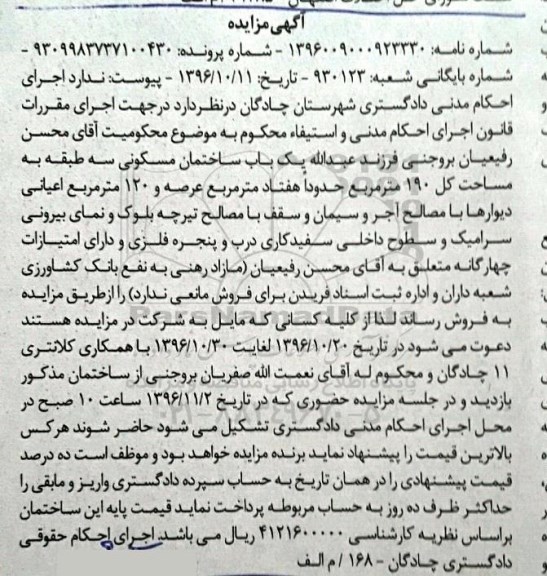 آگهی مزایده
شماره نامه: ۱۳۹۶۰۰۹۰۰۰۹۲۳۳۳۰ - شماره پرونده: ۹۳۰۹۹۸۳۷۳۷۱۰۰۴۳۰ -
شماره بایگانی شعبه: ۹۳۰۱۲۳ - تاریخ: ۱۳۹۶/۱۰/۱۱ - پیوست: ندارد اجرای
احکام مدنی دادگستری شهرستان چادگان درنظردارد درجهت اجرای مقررات
قانون اجرای احکام مدنی و استیفاء محکوم به موضوع محکومیت آقای محسن
رفیعیان بروجنی فرزند عبدالله یک باب ساختمان مسکونی سه طبقه به
مساحت کل ۱۹۰ مترمربع حدوداً هفتاد مترمربع عرصه و ۱۲۰ مترمربع اعیانی
دیوارها با مصالح آجر و سیمان و سقف با مصالح تیرچه بلوک و نمای بیرونی
سرامیک و سطوح داخلی سفیدکاری درب و پنجره فلزی و دارای امتیازات
چهارگانه متعلق به آقای محسن رفیعیان (مازاد رهنی به نفع بانک کشاورزی
شعبه داران و اداره ثبت اسناد فریدن برای فروش مانعی ندارد) را ازطریق مزایده
به فروش رساند لذا از کلیه کسانی که مایل به شرکت در مزایده هستند
دعوت می شود در تاریخ ۱۳۹۶/۱۰/۲۰ لغایت ۱۳۹۶/۱۰/۳۰ با همکاری کلانتری
۱۱ چادگان و محکوم له آقای نعمت الله صفریان بروجنی از ساختمان مذکور
بازدید و در جلسه مزایده حضوری که در تاریخ ۱۳۹۶/۱۱/۲ ساعت ۱۰ صبح در
محل اجرای احکام مدنی دادگستری تشکیل می شود حاضر شوند هرکس
بالاترین قیمت را پیشنهاد نماید برنده مزایده خواهد بود و موظف است ده درصد
قیمت پیشنهادی را در همان تاریخ به حساب سپرده دادگستری واریز و مابقی را
حداکثر ظرف ده روز به حساب مربوطه پرداخت نماید قیمت پایه این ساختمان
براساس نظریه کارشناسی ۴۱۲۱۶۰۰۰۰۰ ریال می باشد. اجرای احکام حقوقی
دادگستری چادگان - ۱۶۸ / م الف